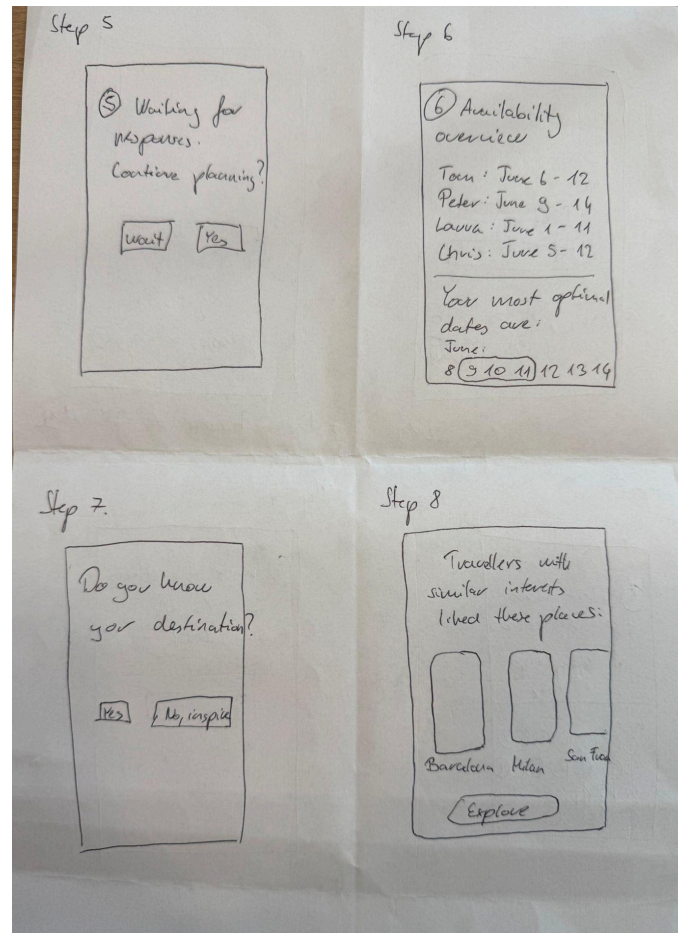 Step 5
⑤ Waiting for
responses.
Continue planning?
wait Yes
Step 6
⑥ Availability
overview
Tom: June 6 - 12
Peter: June 9 - 14
Laura: June 1 - 11
Chris: June 5 - 12
Your most optimal
dates are:
June:
8 9 10 11 12 13 14
Step 7.
Do you know
your destination?
Yes No, inspire
Step 8
Travellers with
similar interests
liked these places:
Barcelona Milan San Fran
Explore